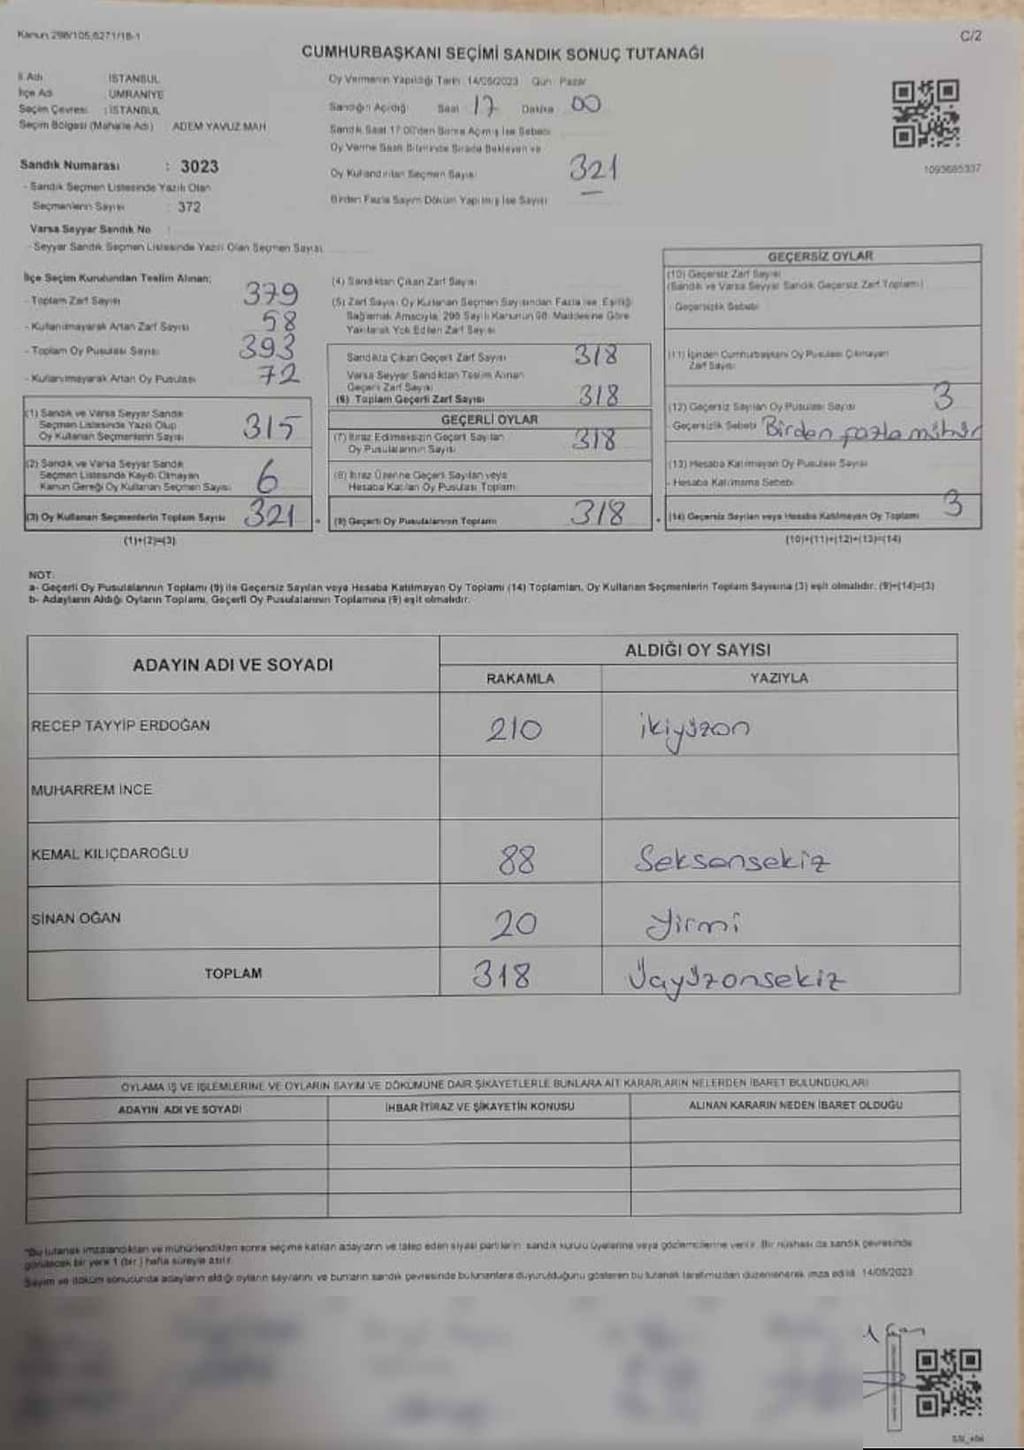 Kanun 298/105,6271/18-1
C/2
CUMHURBAŞKANI SEÇİMİ SANDIK SONUÇ TUTANAĞI
İl Adı : İSTANBUL
İlçe Adı : ÜMRANİYE
Seçim Çevresi : İSTANBUL
Seçim Bölgesi (Mahalle Adı) ADEM YAVUZ MAH
Sandık Numarası : 3023
- Sandık Seçmen Listesinde Yazılı Olan
Seçmenlerin Sayısı : 372
Varsa Seyyar Sandık No :
- Seyyar Sandık Seçmen Listesinde Yazılı Olan Seçmen Sayısı
Oy Vermenin Yapıldığı Tarih 14/05/2023 Gün Pazar
Sandığın Açıldığı Saat 17 Dakika 00
Sandık Saat 17.00'den Sonra Açılmış İse Sebebi
Oy Verme Saati Bitiminde Sırada Bekleyen ve
Oy Kullandırılan Seçmen Sayısı 321
Birden Fazla Sayım Döküm Yapılmış İse Sayısı —
1093685337
İlçe Seçim Kurulundan Teslim Alınan;
- Toplam Zarf Sayısı 379
- Kullanılmayarak Artan Zarf Sayısı 58
- Toplam Oy Pusulası Sayısı 393
- Kullanılmayarak Artan Oy Pusulası 72
(1) Sandık ve Varsa Seyyar Sandık
Seçmen Listesinde Yazılı Olup
Oy Kullanan Seçmenlerin Sayısı 315
(2) Sandık ve Varsa Seyyar Sandık
Seçmen Listesinde Kayıtlı Olmayan
Kanun Gereği Oy Kullanan Seçmen Sayısı 6
(3) Oy Kullanan Seçmenlerin Toplam Sayısı 321
(1)+(2)=(3)
(4) Sandıktan Çıkan Zarf Sayısı
(5) Zarf Sayısı Oy Kullanan Seçmen Sayısından Fazla ise, Eşitliği
Sağlamak Amacıyla, 298 Sayılı Kanunun 98. Maddesine Göre
Yakılarak Yok Edilen Zarf Sayısı
Sandıkta Çıkan Geçerli Zarf Sayısı 318
Varsa Seyyar Sandıktan Teslim Alınan
Geçerli Zarf Sayısı
(6) Toplam Geçerli Zarf Sayısı 318
GEÇERLİ OYLAR
(7) İtiraz Edilmeksizin Geçerli Sayılan
Oy Pusulalarının Sayısı 318
(8) İtiraz Üzerine Geçerli Sayılan veya
Hesaba Katılan Oy Pusulası Toplamı
(9) Geçerli Oy Pusulalarının Toplamı 318
GEÇERSİZ OYLAR
(10) Geçersiz Zarf Sayısı
(Sandık ve Varsa Seyyar Sandık Geçersiz Zarf Toplamı)
- Geçersizlik Sebebi
(11) İçinden Cumhurbaşkanı Oy Pusulası Çıkmayan
Zarf Sayısı
(12) Geçersiz Sayılan Oy Pusulası Sayısı 3
- Geçersizlik Sebebi Birden fazla mühür
(13) Hesaba Katılmayan Oy Pusulası Sayısı
- Hesaba Katılmama Sebebi
(14) Geçersiz Sayılan veya Hesaba Katılmayan Oy Toplamı 3
(10)+(11)+(12)+(13)=(14)
NOT:
a- Geçerli Oy Pusulalarının Toplamı (9) ile Geçersiz Sayılan veya Hesaba Katılmayan Oy Toplamı (14) Toplamları, Oy Kullanan Seçmenlerin Toplam Sayısına (3) eşit olmalıdır. (9)+(14)=(3)
b- Adayların Aldığı Oyların Toplamı, Geçerli Oy Pusulalarının Toplamına (9) eşit olmalıdır.
ADAYIN ADI VE SOYADI
ALDIĞI OY SAYISI
RAKAMLA YAZIYLA
RECEP TAYYİP ERDOĞAN 210 ikiyüzon
MUHARREM İNCE
KEMAL KILIÇDAROĞLU 88 Seksensekiz
SİNAN OĞAN 20 Yirmi
TOPLAM 318 Üçyüzonsekiz
OYLAMA İŞ VE İŞLEMLERİNE VE OYLARIN SAYIM VE DÖKÜMÜNE DAİR ŞİKAYETLERLE BUNLARA AİT KARARLARIN NELERDEN İBARET BULUNDUKLARI
ADAYIN ADI VE SOYADI İHBAR İTİRAZ VE ŞİKAYETİN KONUSU ALINAN KARARIN NEDEN İBARET OLDUĞU
*Bu tutanak imzalandıktan ve mühürlendikten sonra seçime katılan adayların ve talep eden siyasi partilerin sandık kurulu üyelerine veya gözlemcilerine verilir. Bir nüshası da sandık çevresinde
görülecek bir yere 1 (bir) hafta süreyle asılır.
Sayım ve döküm sonucunda adayların aldığı oyların sayılarını ve bunların sandık çevresinde bulunanlara duyurulduğunu gösteren bu tutanak tarafımızdan düzenlenerek imza edildi. 14/05/2023